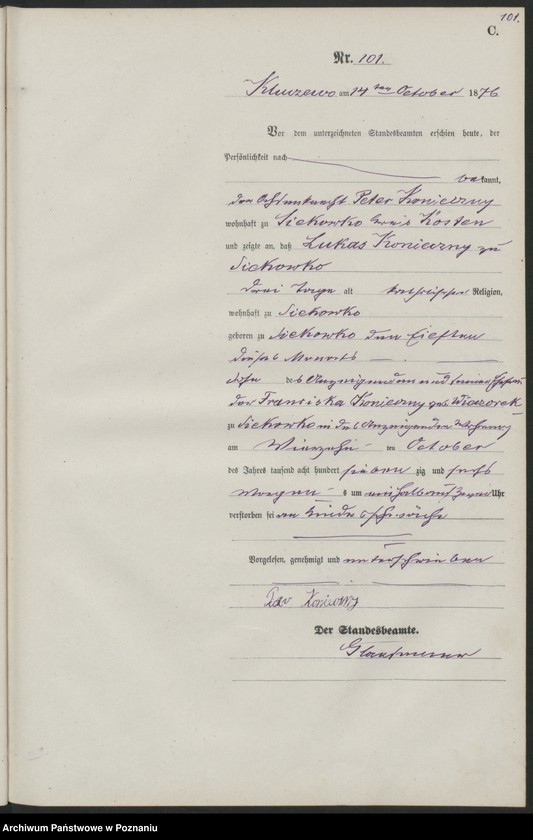 101.
C.
Nr. 101.
Kluczewo am 14 ten October 1876
Vor dem unterzeichneten Standesbeamten erschien heute, der
Persönlichkeit nach
bekannt,
der Ochsenknecht Peter Konieczny
wohnhaft zu Siekowko Kreis Kosten
und zeigte an, daß Lukas Konieczny zu
Siekowko
drei Tage alt katholischer Religion,
wohnhaft zu Siekowko
geboren zu Siekowko den Eilften
dieses Monats
Sohn des Anzeigenden und seiner Ehefrau
der Franciska Konieczny geb. Wieczorek
zu Siekowko in des Anzeigenden Wohnung
am Vierzehn ten October
des Jahres tausend acht hundert sieben zig und sechs
Morgens um ein halb Uhr
verstorben sei an Kindesschwäche
Vorgelesen, genehmigt und unterschrieben
Konieczny
Der Standesbeamte.
Archiwum Państwowe w Poznaniu